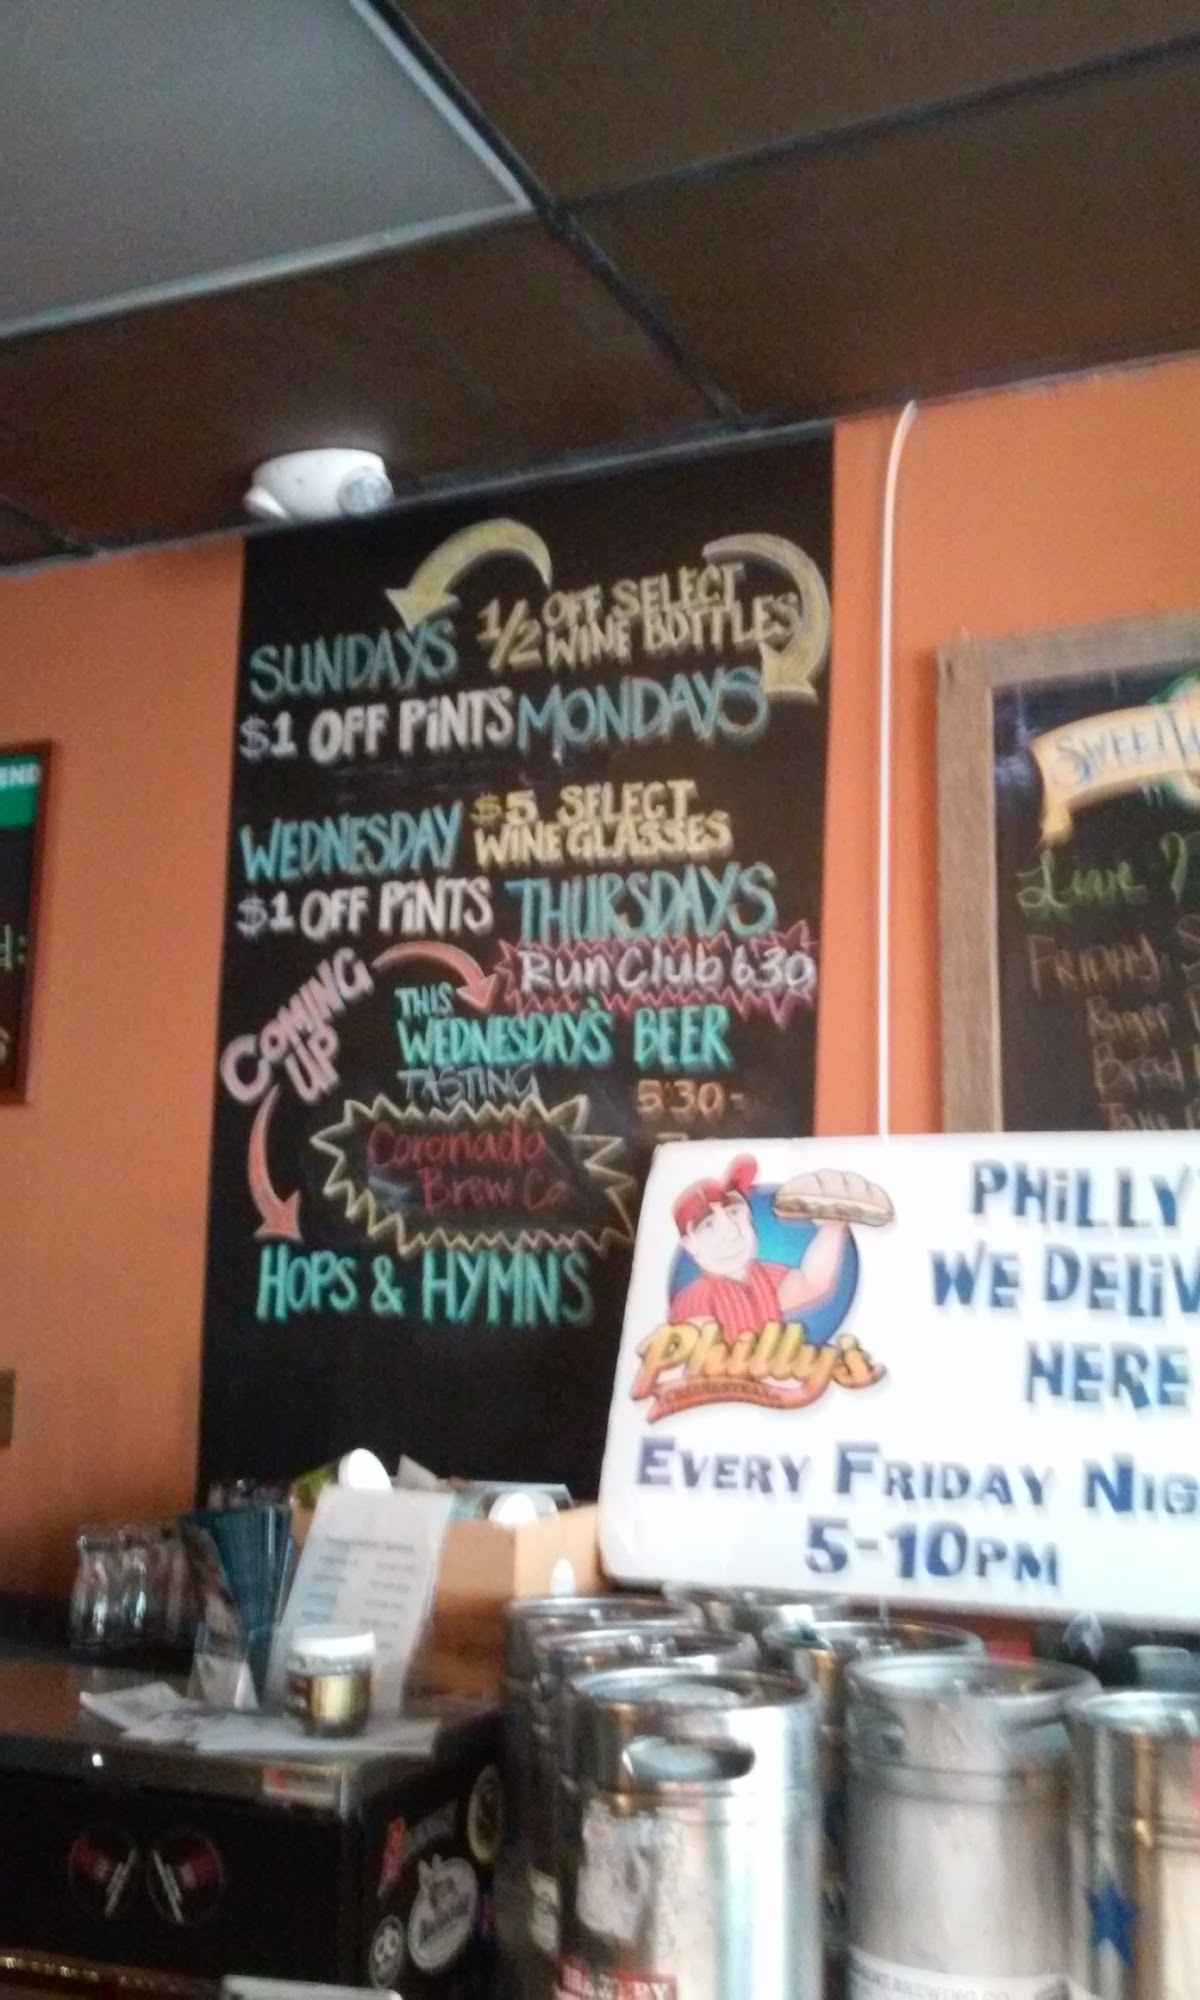 SUNDAYS
1/2 OFF SELECT
WINE BOTTLES
$1 OFF PINTS MONDAYS
WEDNESDAY $5 SELECT
WINE GLASSES
$1 OFF PINTS THURSDAYS
Run Club 6:30
COMING
UP
THIS
WEDNESDAY'S BEER
TASTING
5:30-
Coronado
Brew Co
HOPS & HYMNS
END
SWEET
Live
FRIDAY,
Roger
Brad
PHILLY
WE DELIV
HERE
Philly's
EVERY FRIDAY NIG
5-10PM